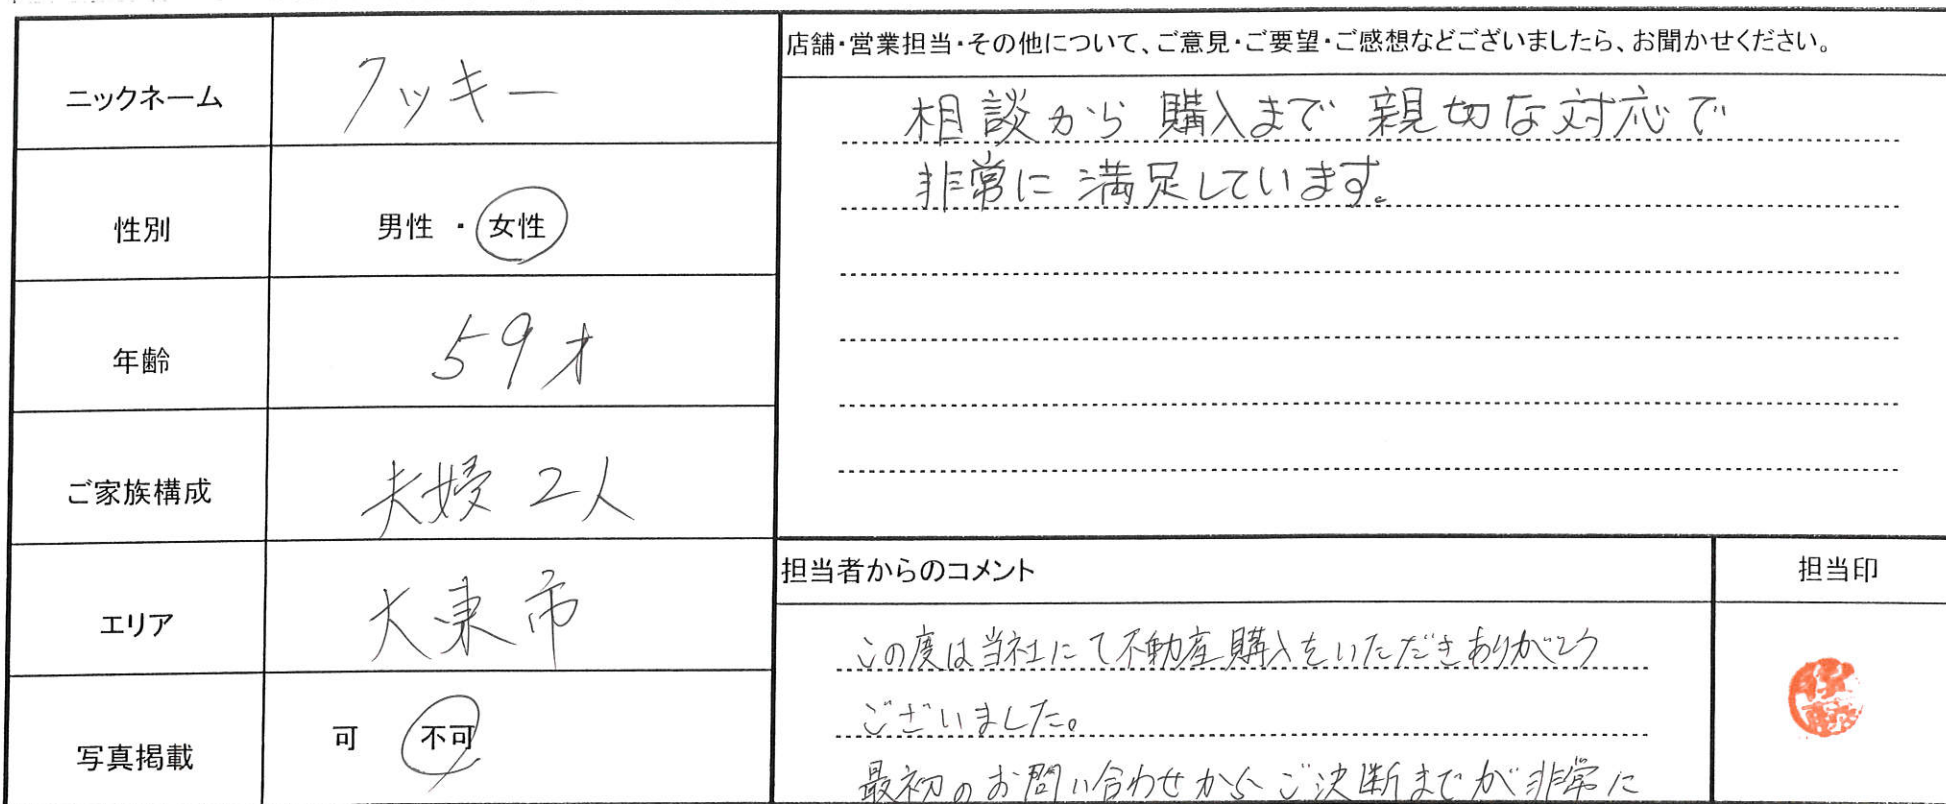 ニックネーム クッキー
性別 男性 ・ 女性
年齢 59才
ご家族構成 夫婦 2人
エリア 大東市
写真掲載 可 不可
店舗・営業担当・その他について、ご意見・ご要望・ご感想などございましたら、お聞かせください。
相談から購入まで親切な対応で
非常に満足しています。
担当者からのコメント
この度は当社にて不動産購入をいただきありがとう
ございました。
最初のお問い合わせからご決断までが非常に
担当印
伊藤